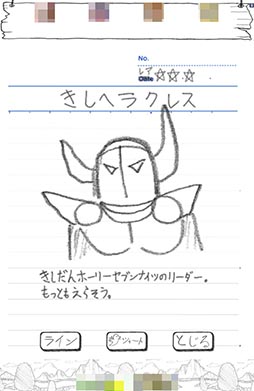 No.
レア ☆☆☆
きしヘラクレス
きしだんホーリーセブンナイツのリーダー。
もっともえらそう。
ライン
ツイート
とじる